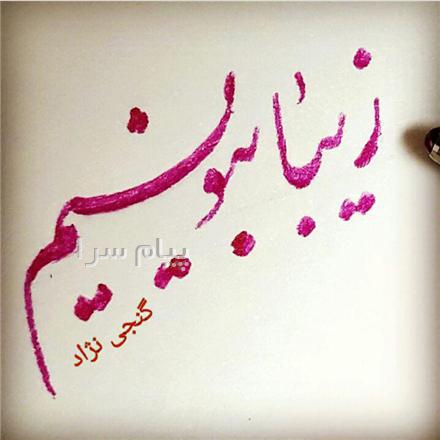 زیبا بنویسیم
پیام سرا
گنجی نژاد